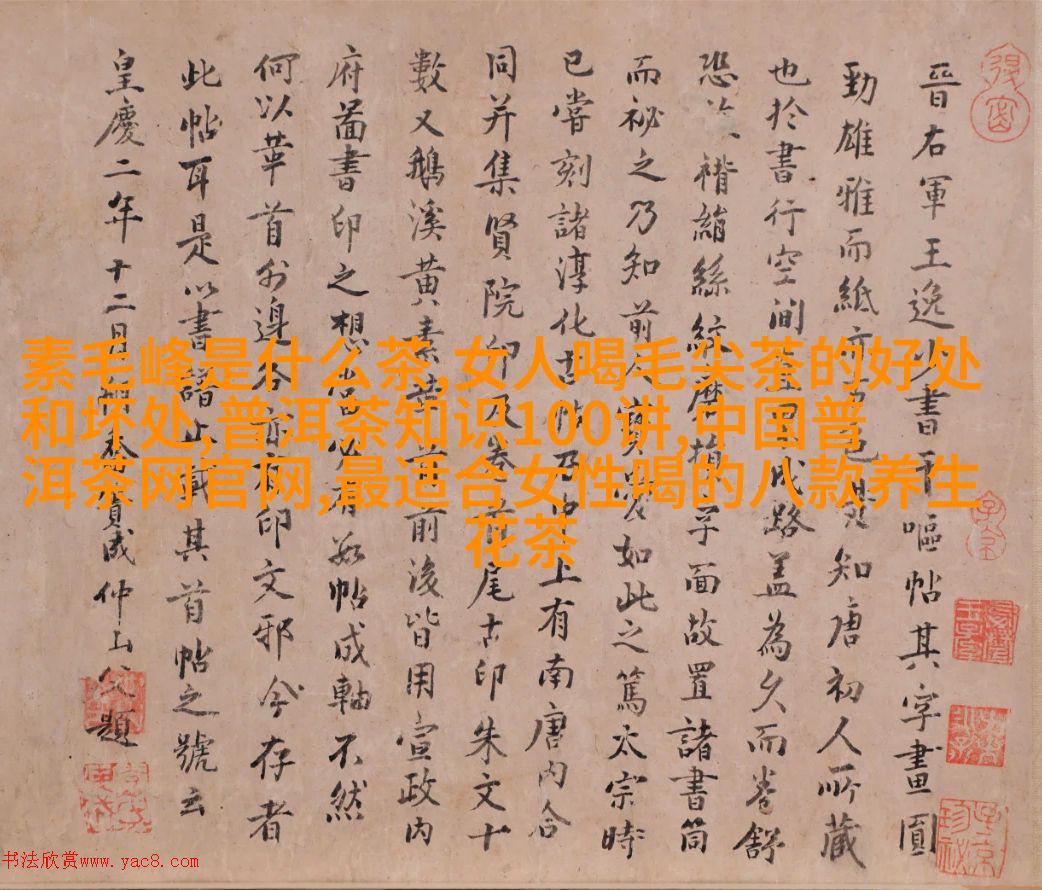 晉右軍王逸少書干嘔帖其字畫圓
勁雄雅而紙亦
知唐初人所藏
也於書行空間
成路蓋為久而卷舒
恐
褙絹絲紋磨損字面故置諸書筒
而祕之乃知前人寶愛如此之篤太宗時
已嘗刻諸淳化古帖乃中上有南唐內合
同并集賢院印及卷前尾古印朱文十
數又鵝溪黃素黃
前前後皆用宣政內
府圖書印之想
有若帖成軸不然
何以華首外邊各亦有印文邪今存者
此帖耳是以書諸
其首帖之號云
皇慶二年十二月
成仲山父題
素毛峰是什么茶,女人喝毛尖茶的好处
和坏处,普洱茶知识100讲,中国普
洱茶网官网,最适合女性喝的八款养生
花茶
书法欣赏www.yac8.com